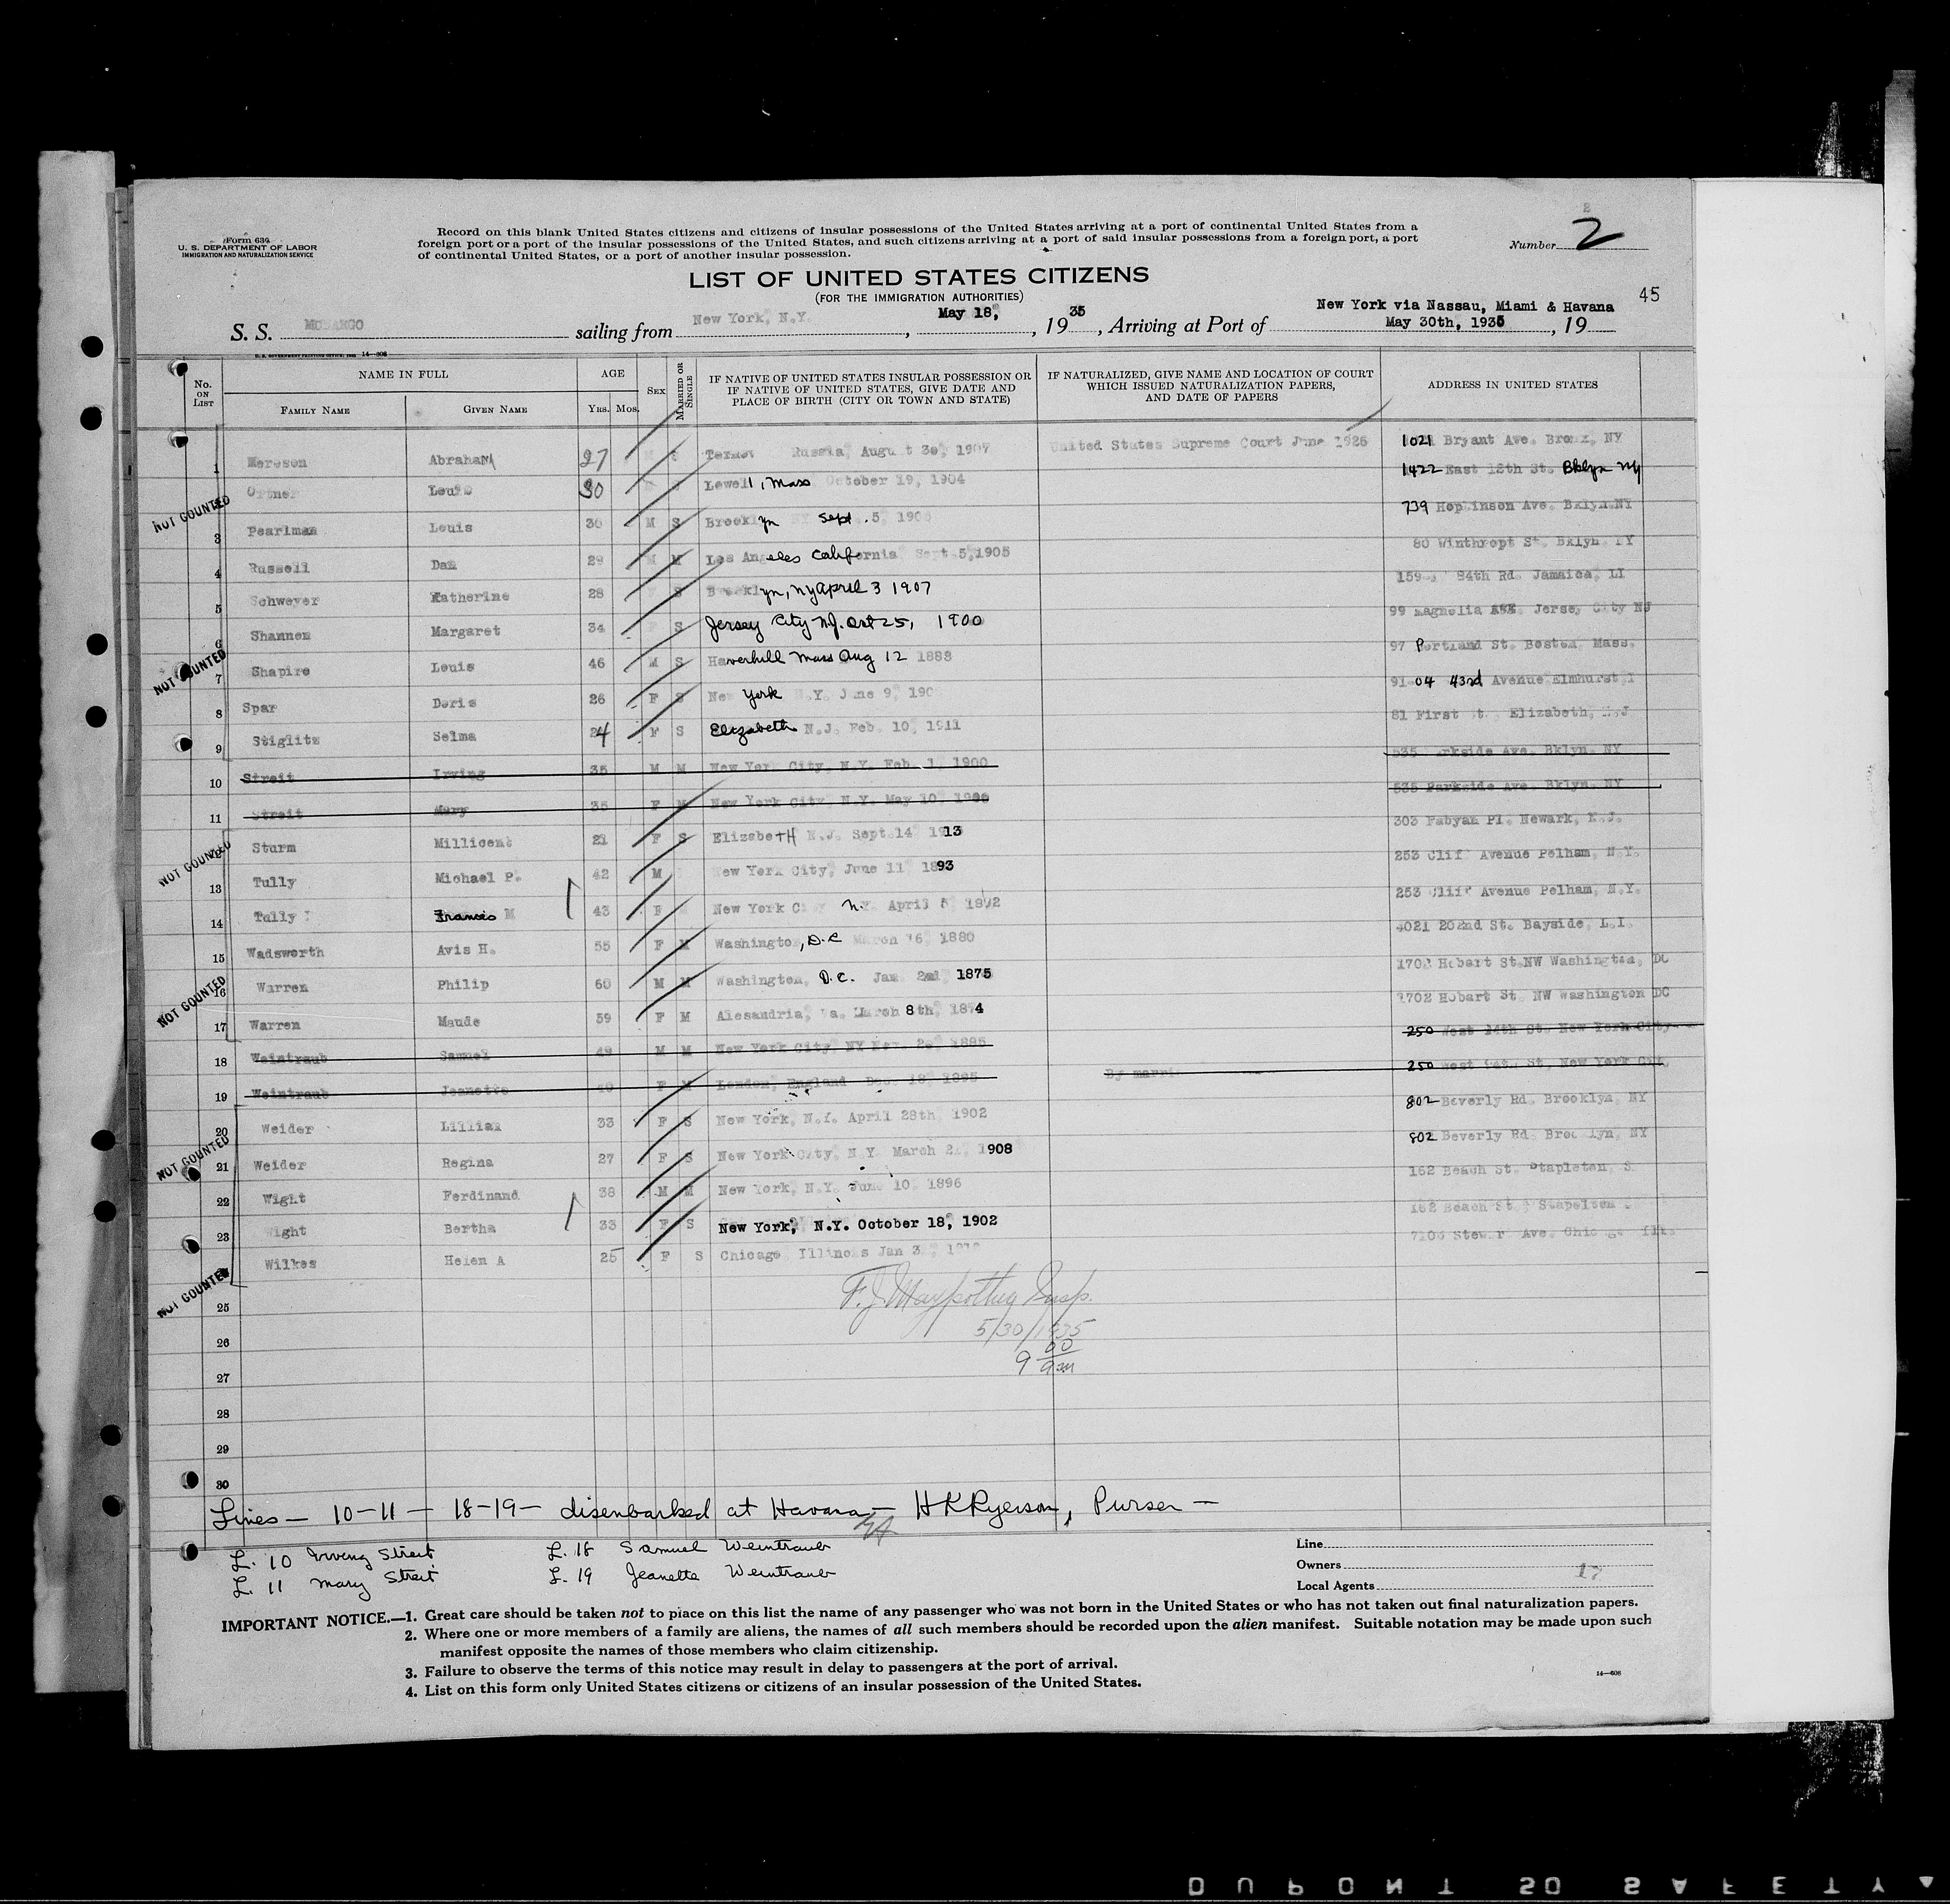 Form 630
U. S. DEPARTMENT OF LABOR
IMMIGRATION AND NATURALIZATION SERVICE
Record on this blank United States citizens and citizens of insular possessions of the United States arriving at a port of continental United States from a
foreign port or a port of the insular possessions of the United States, and such citizens arriving at a port of said insular possessions from a foreign port, a port
of continental United States, or a port of another insular possession.
Number 2
LIST OF UNITED STATES CITIZENS
(FOR THE IMMIGRATION AUTHORITIES)
45
S. S. MUNARGO sailing from New York, N.Y., May 18, 1935, Arriving at Port of New York via Nassau, Miami & Havana May 30th, 1935, 19
U. S. GOVERNMENT PRINTING OFFICE: 14—608
No. ON LIST
NAME IN FULL
FAMILY NAME GIVEN NAME
AGE
YRS. MOS.
SEX
MARRIED OR SINGLE
IF NATIVE OF UNITED STATES INSULAR POSSESSION OR
IF NATIVE OF UNITED STATES, GIVE DATE AND
PLACE OF BIRTH (CITY OR TOWN AND STATE)
IF NATURALIZED, GIVE NAME AND LOCATION OF COURT
WHICH ISSUED NATURALIZATION PAPERS,
AND DATE OF PAPERS
ADDRESS IN UNITED STATES
1 Mereson Abraham 27 Russia, August 30, 1907 United States Supreme Court June 1926 1021 Bryant Ave. Bronx, NY
NOT COUNTED
Ortner Louis 30 Lowell, Mass October 19, 1904 1422 East 12th St. Bklyn NY
3 Pearlman Louis 30 M S Brooklyn NY Sept. 5, 739 Hopkinson Ave. Bklyn NY
4 Russell Dan 29 M M Los Angeles California Sept 5, 1905 80 Winthropt St. Bklyn. NY
5 Schweyer Katherine 28 F S Brooklyn, NY April 3 1907 84th Rd. Jamaica, LI
6 Shannon Margaret 34 F S Jersey City N.J. Oct 25, 1900 99 Magnolia Ave. Jersey City NJ
NOT COUNTED
7 Shapiro Louis 46 M S Haverhill Mass Aug 12 1888 97 Portland St. Boston, Mass.
8 Spar Doris 26 F S New York N.Y. June 9, 91-04 43rd Avenue Elmhurst
9 Stiglitz Selma 24 F S Elizabeth N.J. Feb. 10, 1911 81 First St. Elizabeth, N.J
10 Streit Irving 35 M M New York City, N.Y. Feb. 1, 1900 535 Parkside Ave. Bklyn. NY
11 Streit Mary 35 F M New York City, N.Y. May 10, 535 Parkside Ave. Bklyn. NY
NOT COUNTED
Sturm Millicent 21 F S Elizabeth N.J. Sept. 14 1913 303 Fabyan Pl. Newark, N.J.
13 Tully Michael P. 42 M New York City, June 11 1893 253 Cliff Avenue Pelham, N.Y.
14 Tully Frances M 43 F New York City N.Y. April 5 1892 253 Cliff Avenue Pelham, N.Y.
15 Wadsworth Avis H. 55 F M Washington, D.C March 16, 1880 4021 202nd St. Bayside, L.I.
NOT COUNTED
16 Warren Philip 60 M M Washington, D.C. Jan. 2nd, 1875 1702 Hobart St.NW Washington, DC
17 Warren Maude 59 F M Alexandria, Va. March 8th, 1874 1702 Hobart St. NW Washington DC
18 Weintraub Samuel 49 M M New York City, NY 1885 250 West 94th St. New York City
19 Weintraub Jeanette F M London, England Dec. 18, 1895 By marri 250 West St. New York City
20 Weider Lillian 33 F S New York, N.Y. April 28th, 1902 802 Beverly Rd. Brooklyn, NY
NOT COUNTED
21 Weider Regina 27 F S New York City, N.Y. March 1908 802 Beverly Rd. Brooklyn, NY
22 Wight Ferdinand 38 M M New York, N.Y. June 10, 1896 162 Beach St. Stapleton, S
23 Wight Bertha 33 F S New York, N.Y. October 18, 1902 162 Beach St. Stapelton
Wilkes Helen A 25 F S Chicago Illinois Jan 3, Ave. Chicago Ills
NOT COUNTED
25
26
27
28
29
30
5/30/1935
9 00 am
Lines — 10-11 — 18-19 — disenbarked at Havana — H K Ryerson, Purser —
L. 10 Irving Streit L. 18 Samuel Weintraub
L. 11 Mary Streit L. 19 Jeanette Weintraub
Line
Owners
Local Agents
17
IMPORTANT NOTICE.—1. Great care should be taken not to place on this list the name of any passenger who was not born in the United States or who has not taken out final naturalization papers.
2. Where one or more members of a family are aliens, the names of all such members should be recorded upon the alien manifest. Suitable notation may be made upon such
manifest opposite the names of those members who claim citizenship.
3. Failure to observe the terms of this notice may result in delay to passengers at the port of arrival.
4. List on this form only United States citizens or citizens of an insular possession of the United States.
14—608
DUPONT SO SAFETY